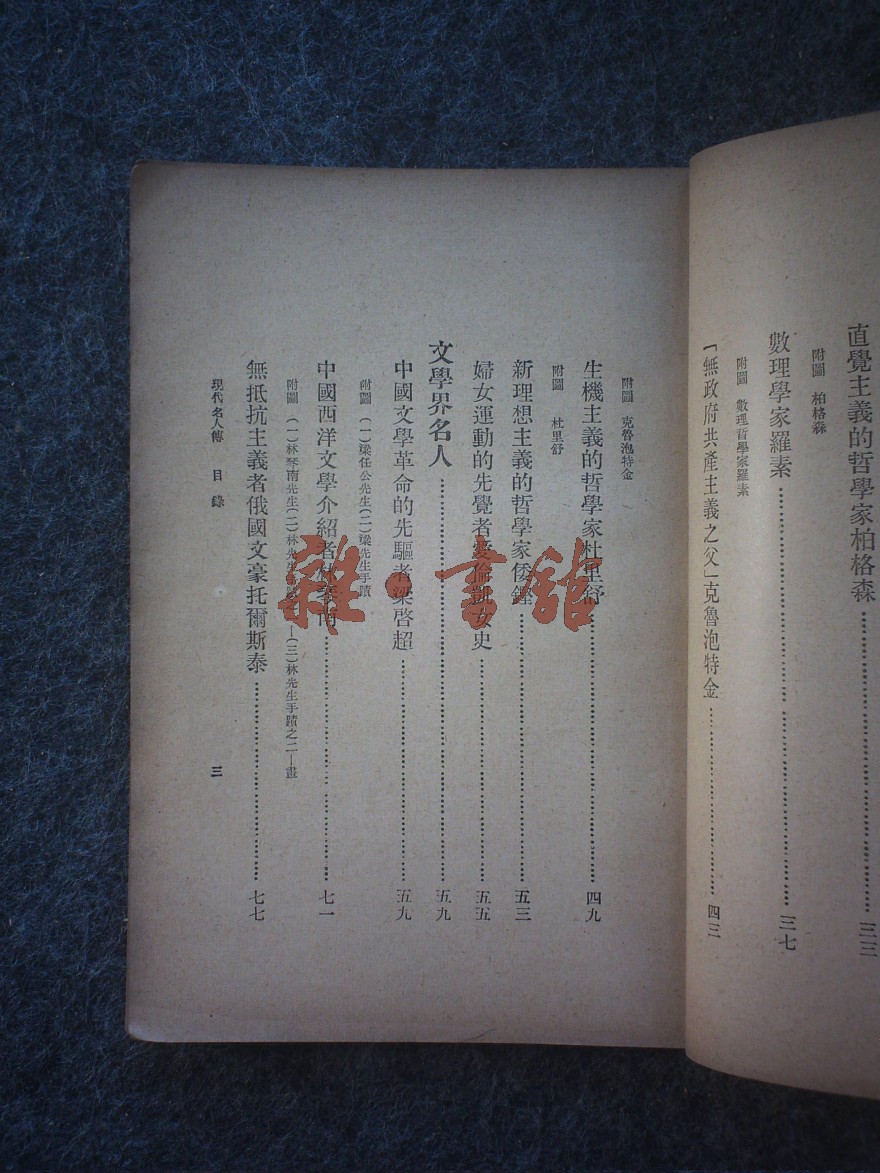 直覺主義的哲學家柏格森……三三
附圖　柏格森
數理學家羅素……三七
附圖　數理哲學家羅素
「無政府共產主義之父」克魯泡特金……四三
附圖　克魯泡特金
生機主義的哲學家杜里舒……四九
附圖　杜里舒
新理想主義的哲學家倭鏗……五三
婦女運動的先覺者愛倫凱女史……五五
文學界名人……五九
中國文學革命的先驅者梁啓超……五九
附圖　(一)梁任公先生(二)梁先生手蹟
中國西洋文學介紹者林琴南……七一
附圖　(一)林琴南先生(二)林先生手蹟之一—(三)林先生手蹟之二—畫
無抵抗主義者俄國文豪托爾斯泰……七七
現代名人傳　目錄　三
雜·書館